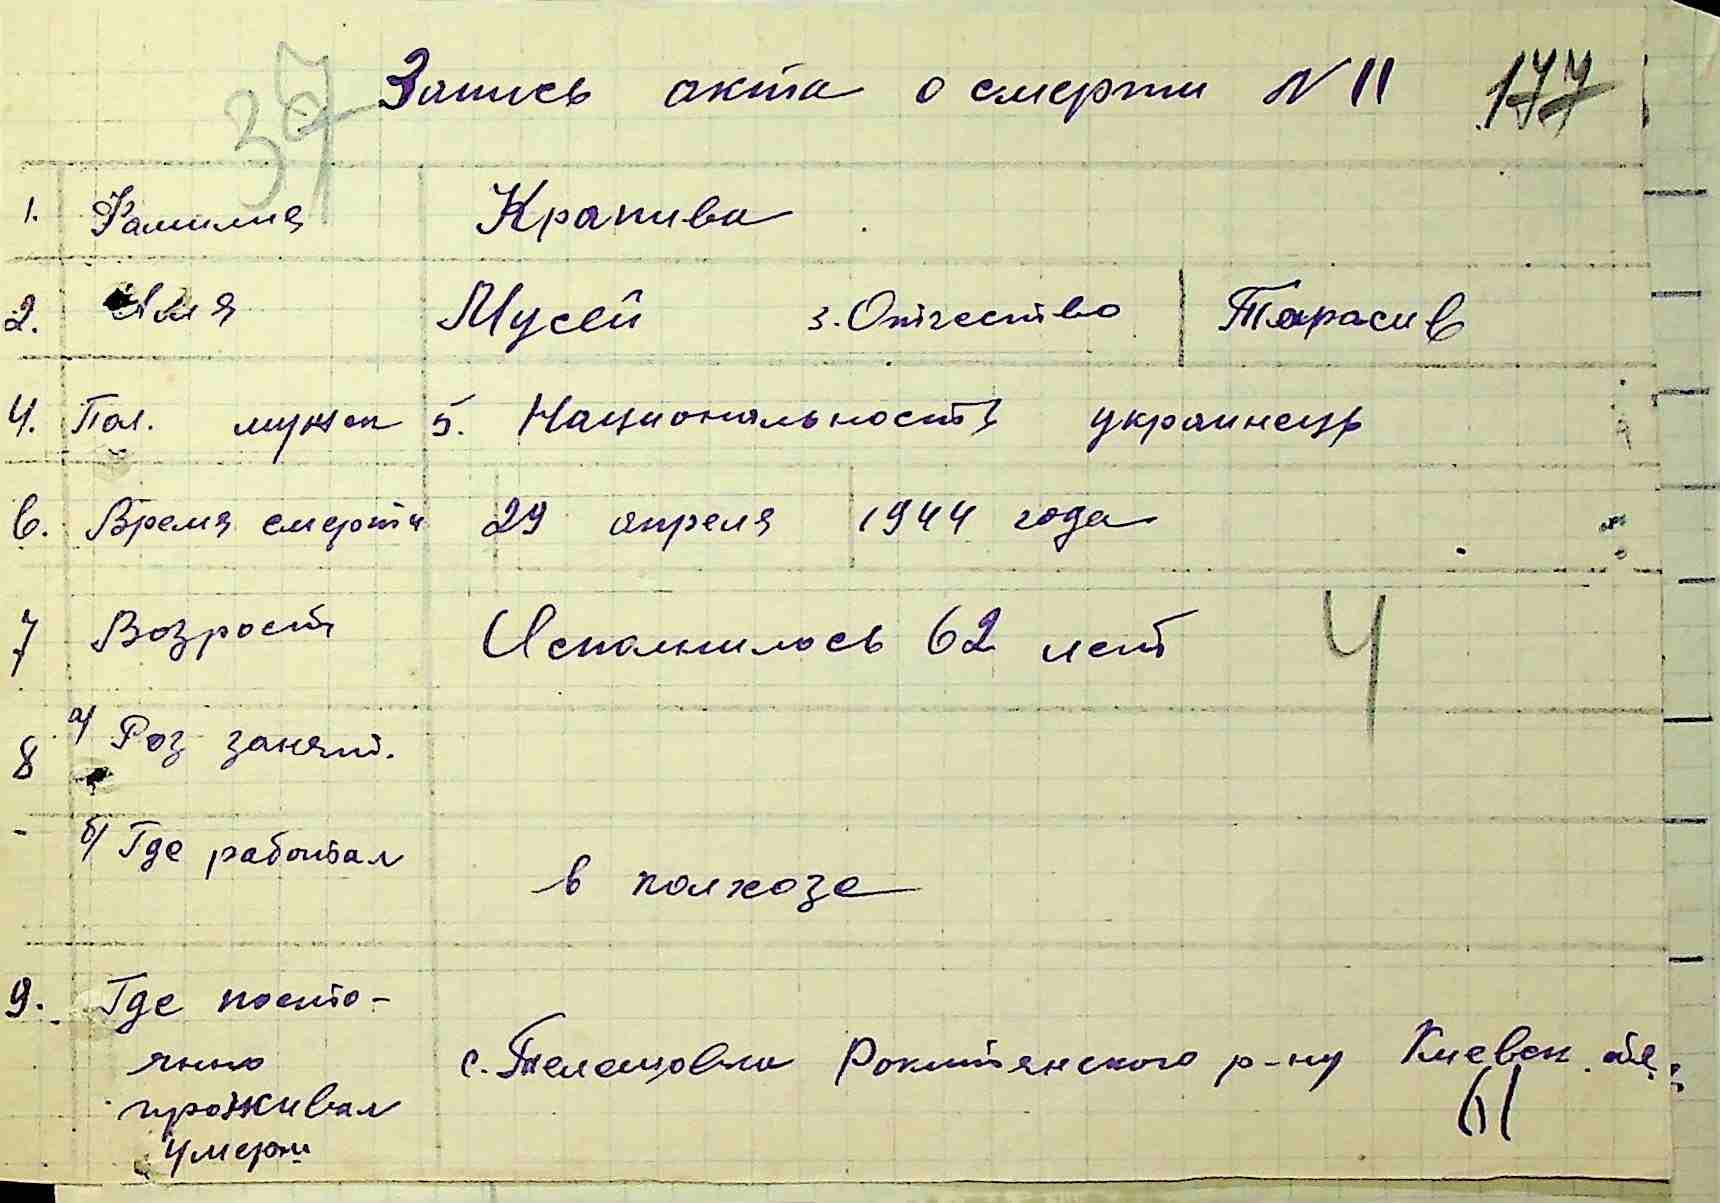 37
Запись акта о смерти N 11 177
1. Фамилия Крапива
2. Имя Мусей 3. Отчество Тарасив
4. Пол. мужск 5. Национальность украинець
6. Время смерти 29 апреля 1944 года
7 Возрост Исполнилось 62 лет 4
8 а) Роз занят.
- б) Где работал
в колхозе
9. Где посто-
янно с. Телешовка Рокитянского р-ну Киевск. обл.
проживал 61
умерш